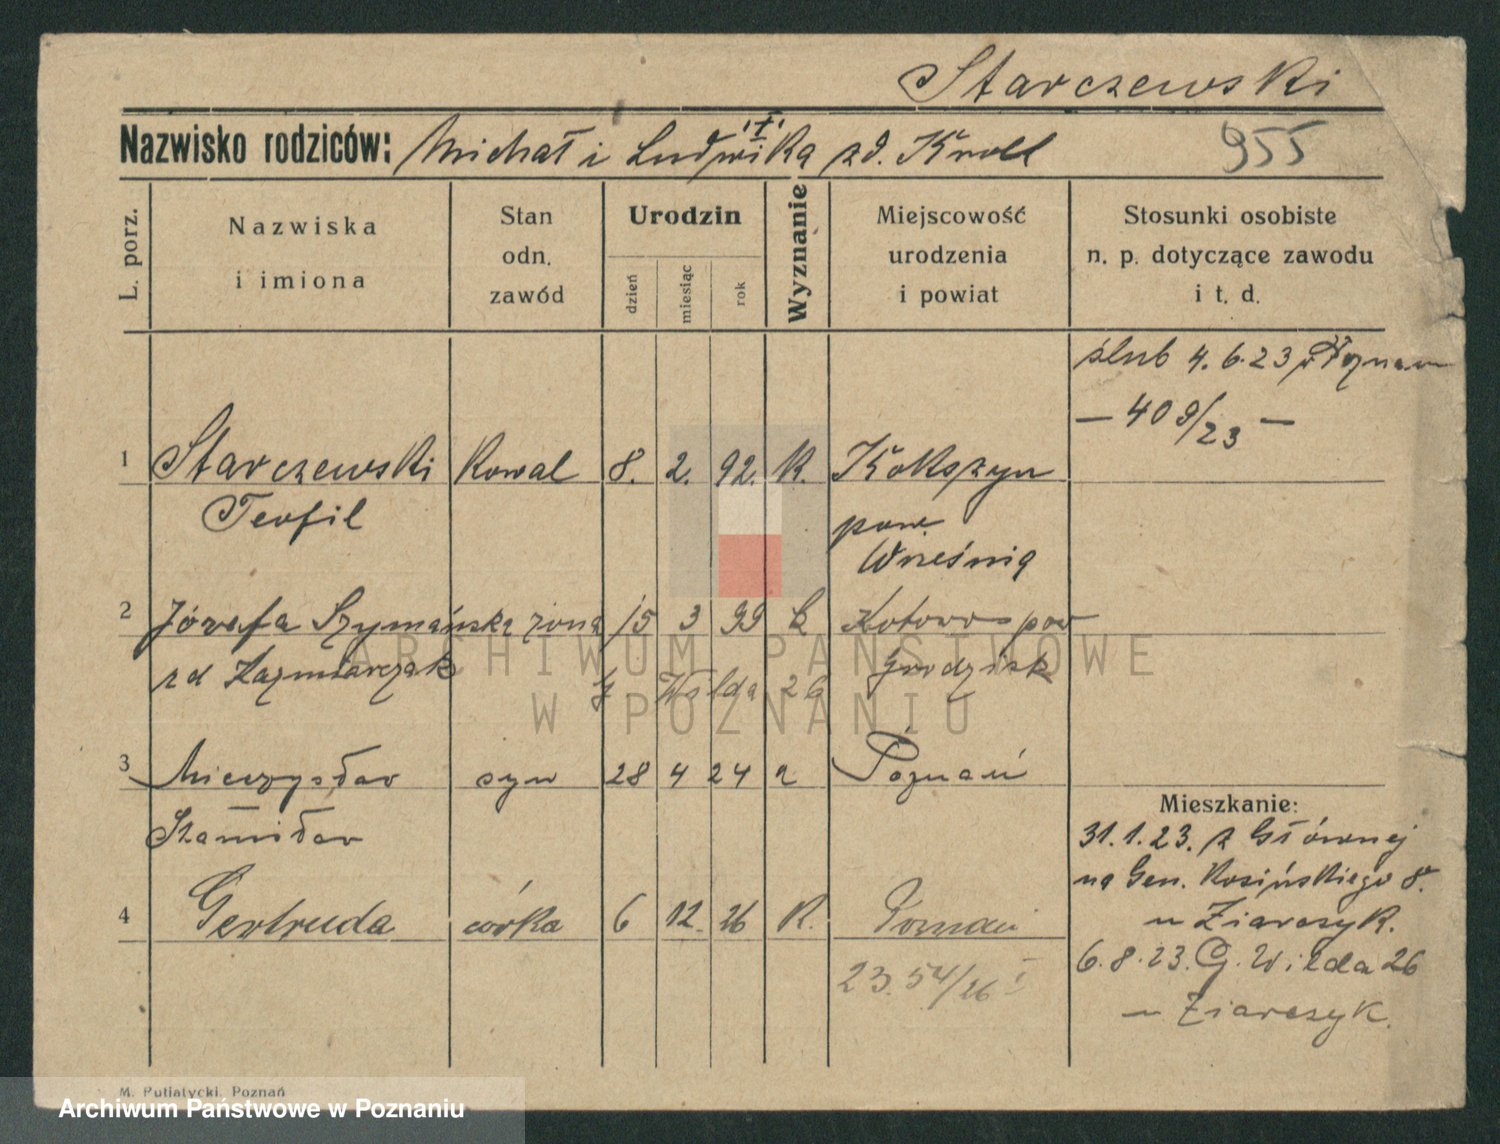 Starczewski
Nazwisko rodziców: Michał i Ludwika zd. Kroll
955
L. porz.
Nazwiska i imiona
Stan odn. zawód
Urodzin
dzień miesiąc rok
Wyznanie
Miejscowość urodzenia i powiat
Stosunki osobiste n. p. dotyczące zawodu i t. d.
ślub 4.6.23 w Poznan
— 409/23 —
1 Starczewski kowal 8. 2. 92. K. Kokszyn
Teofil pow.
Wreśnia
2 Józefa Szymańska żona 15 3 99 k Kotowo pow
zd Kazmiarczak Grodzisk
g Wilda 26
3 Mieczysław syn 28 4 24 Poznań
Stanisław
4 Gertruda córka 6 12 26 K. Poznań
23.54/26 I
Mieszkanie:
31.1.23. z Głównej
na Gen. Kosińskiego 8.
u Ziarczyk.
6.8.23. G. Wilda 26
u Ziarczyk.
M. Putiatycki, Poznań
ARCHIWUM PAŃSTWOWE
W POZNANIU
Archiwum Państwowe w Poznaniu